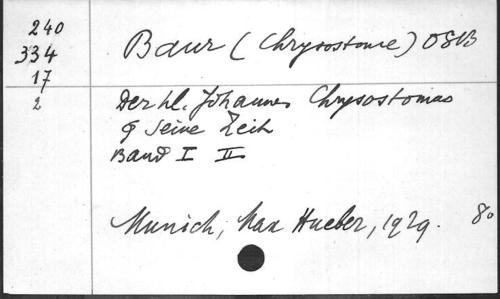 240
334
17
2
Baur (Chrysostome) OSB
Der hl. Johannes Chrysostomus
& seine Zeit
Band I II
Munich, Max Hueber, 1929. 8º